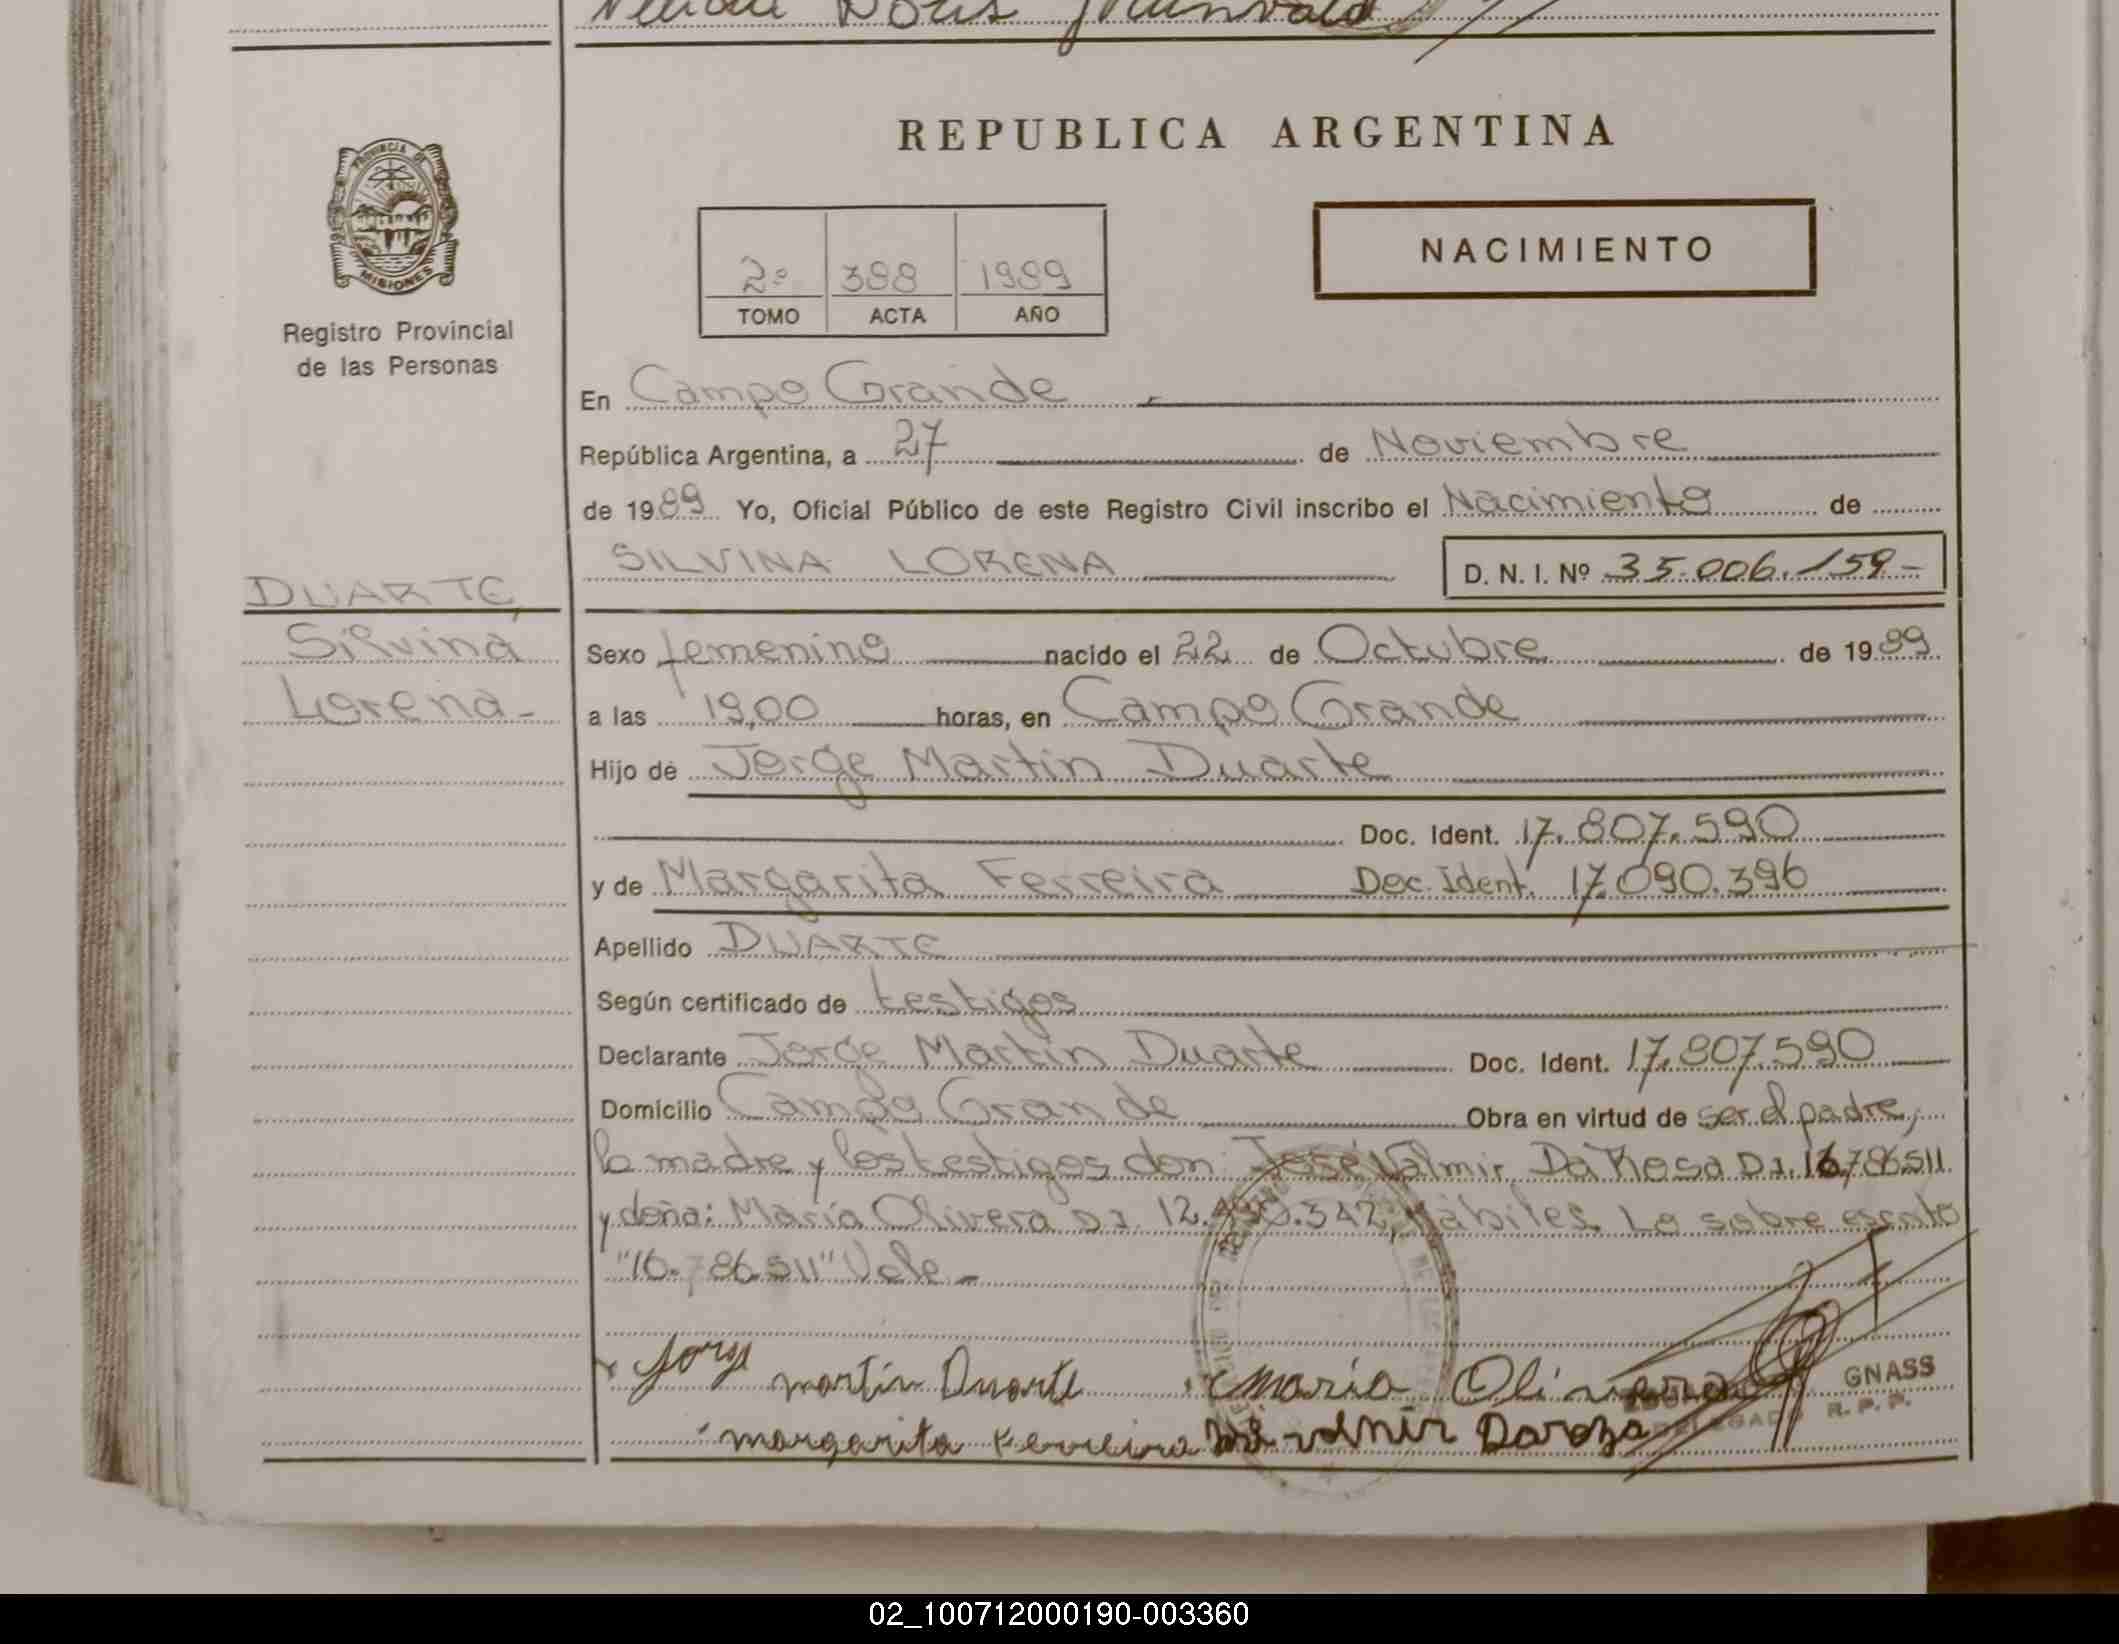 REPUBLICA ARGENTINA
PROVINCIA DE
MISIONES
Registro Provincial
de las Personas
2º 398 1989
TOMO ACTA AÑO
NACIMIENTO
En Campo Grande
República Argentina, a 27 de Noviembre
de 1989 Yo, Oficial Público de este Registro Civil inscribo el Nacimiento de
SILVINA LORENA D. N. I. Nº 35.006.159-
DUARTE,
Silvina
Lorena-
Sexo femenino nacido el 22 de Octubre de 1989
a las 19,00 horas, en Campo Grande
Hijo de Jorge Martin Duarte
Doc. Ident. 17.807.590
y de Margarita Ferreira Doc. Ident. 17.090.396
Apellido DUARTE
Según certificado de testigos
Declarante Jorge Martin Duarte Doc. Ident. 17.807.590
Domicilio Campo Grande Obra en virtud de ser el padre,
la madre y los testigos don: José Valmir Da Rosa D.I. 16.786.511
y doña: María Olivera D.I. 12. .342, hábiles. Lo sobre escrito
"16.786.511" Vale -
Jorge martin Duarte maría Olivera GNASS
DELEGADO R. P. P.
margarita Ferreira José valmir Daroza
02_100712000190-003360